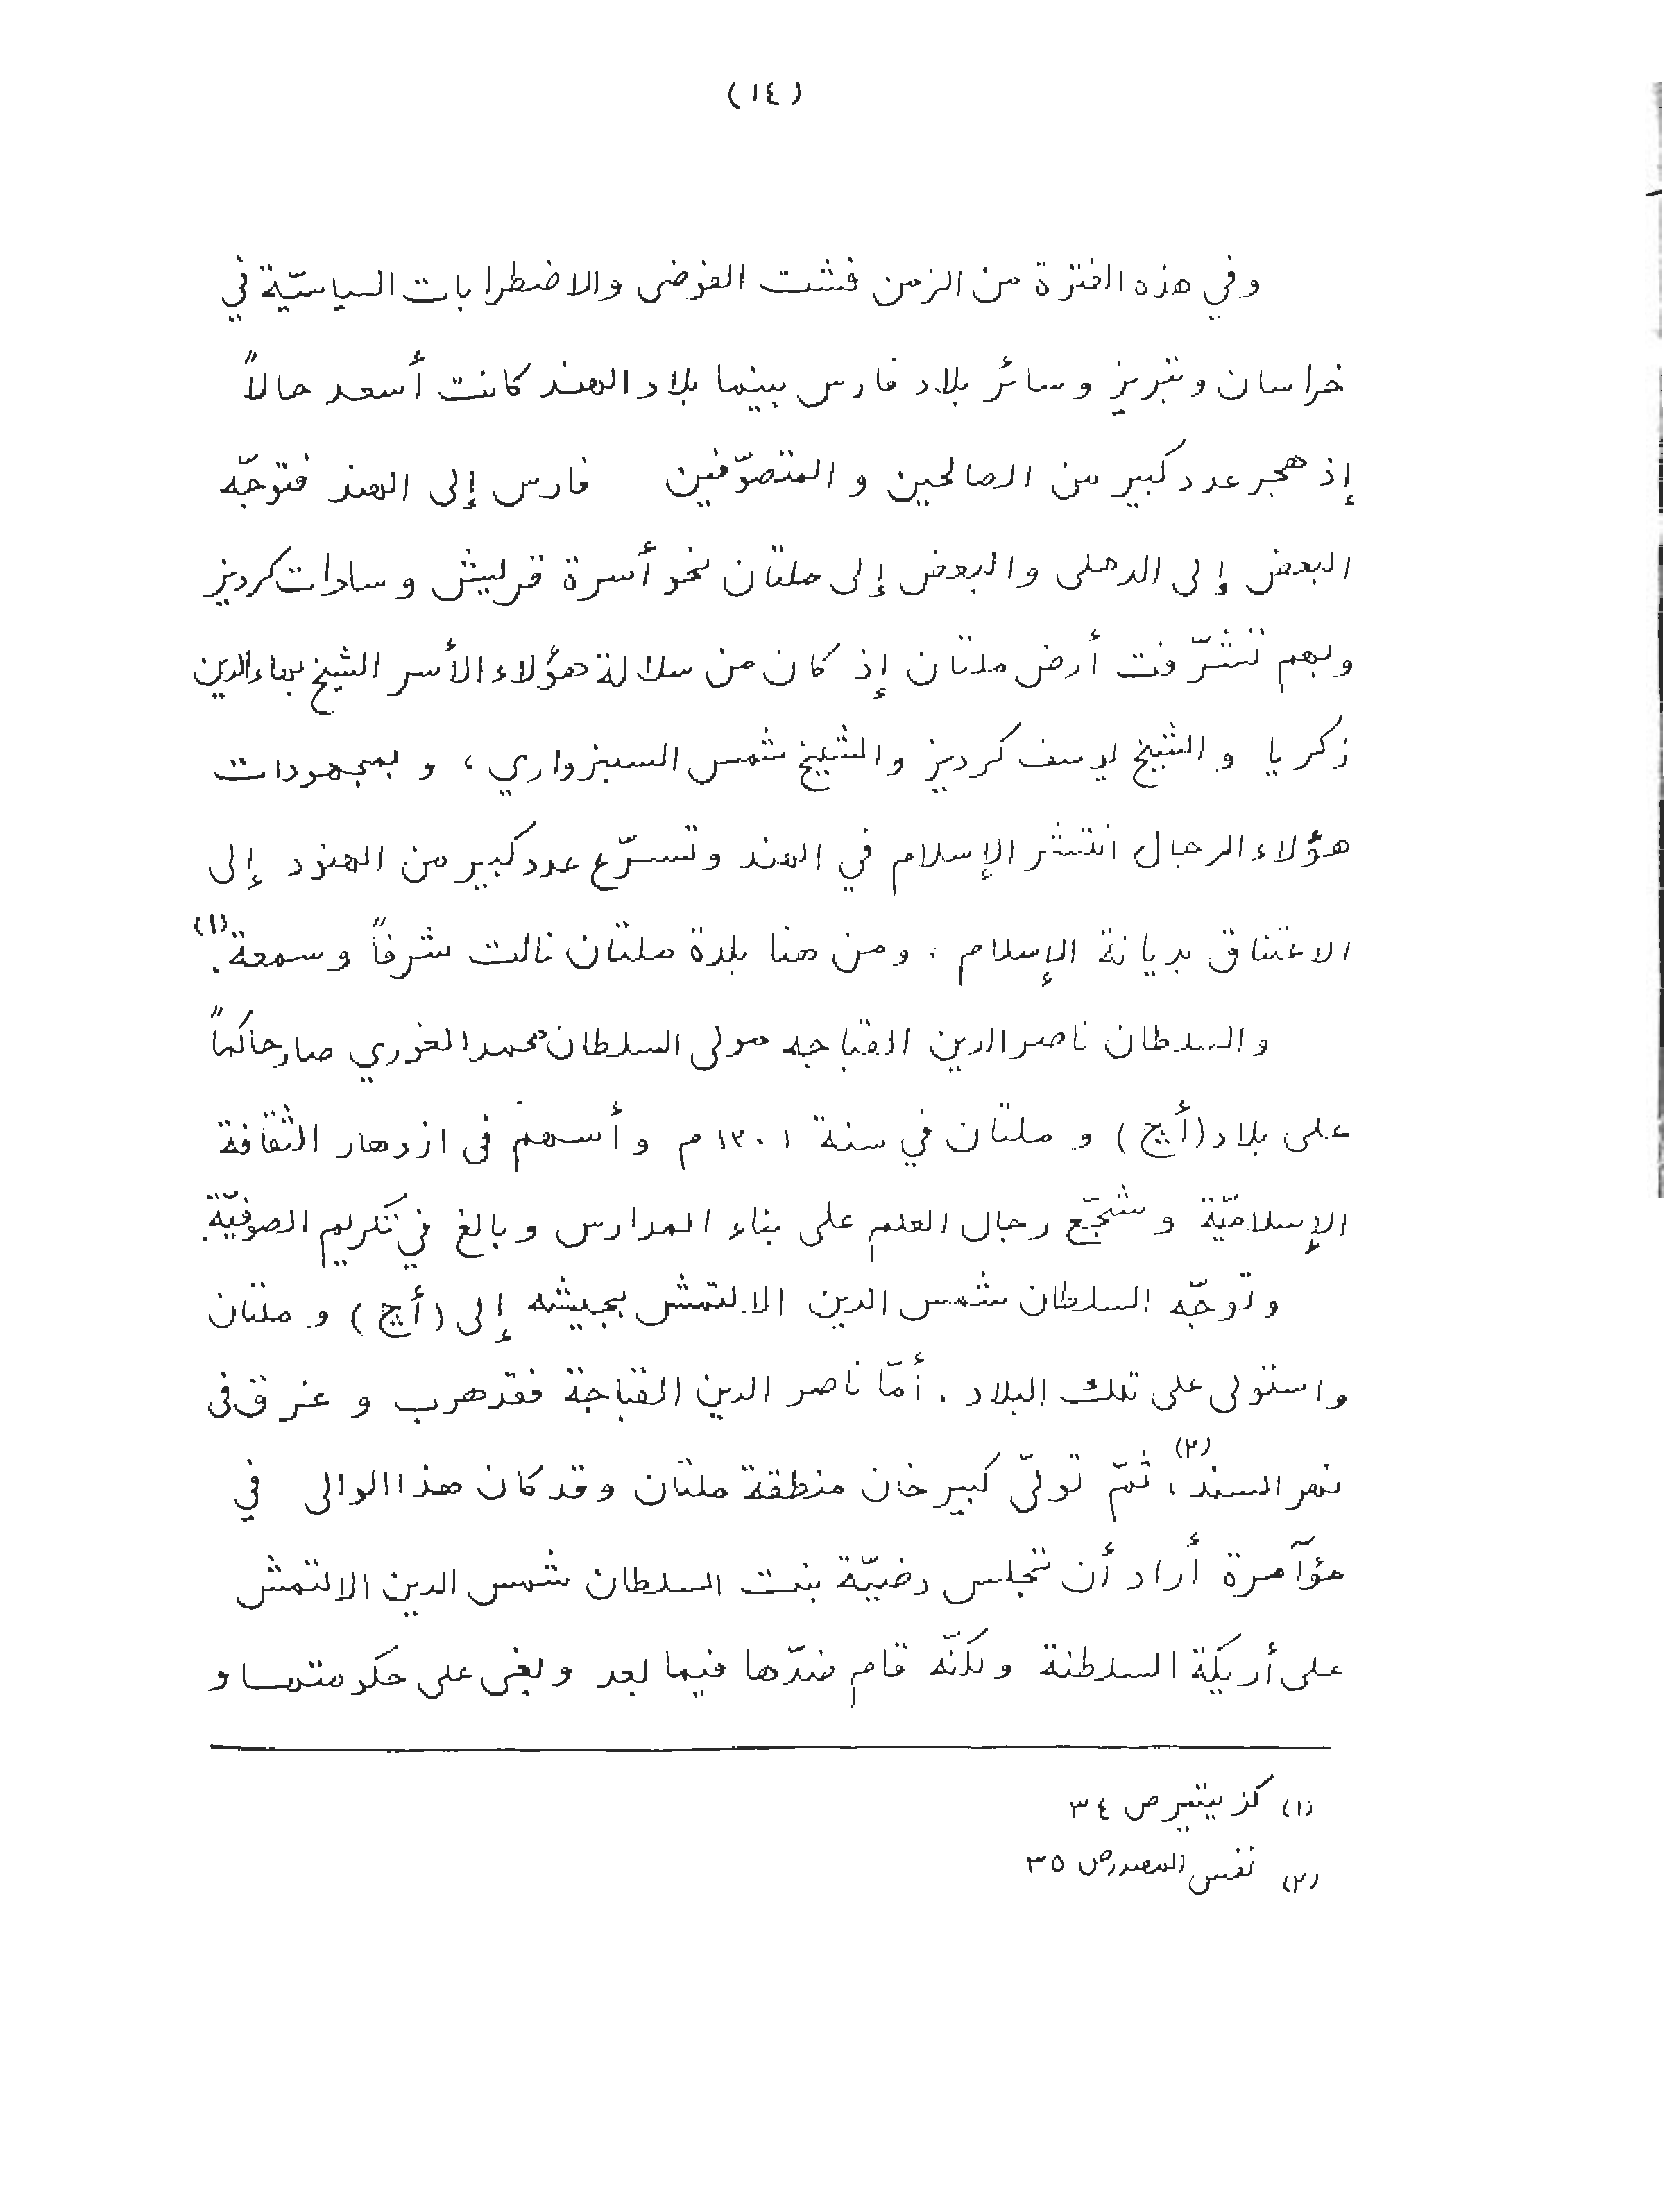 (١٤)
وفي هذه الفترة من الزمن فشت الفوضى والاضطرابات السياسيّة في
خراسان وتبريز وسائر بلاد فارس بينما بلاد الهند كانت أسعد حالاً
إذ هجر عدد كبير من الصالحين و المتصوّفين فارس إلى الهند فتوجّه
البعض إلى الدهلى والبعض إلى ملتان نحو أسرة قريش وسادات كرديز
وبهم تشرّفت أرض ملتان إذ كان من سلالة هؤلاء الأسر الشيخ بهاء الدين
زكريا و الشيخ يوسف كرديز والشيخ شمس السبزواري ، و بمجهودات
هؤلاء الرجال انتشر الإسلام في الهند وتسرّع عدد كبير من الهنود إلى
الاعتناق بديانة الإسلام ، ومن هنا بلدة ملتان نالت شرفاً وسمعة.(١)
والسلطان ناصر الدين القباجه مولى السلطان محمد الغوري صار حاكماً
على بلاد (أچ) و ملتان في سنة ١٢٠١م وأسهم فى ازدهار الثقافة
الإسلاميّة وشجّع رجال العلم على بناء المدارس وبالغ في تكريم الصوفيّة.
وتوجّه السلطان شمس الدين الالتمش بجيشه إلى (أچ) و ملتان
واستولى على تلك البلاد . أمّا ناصر الدين القباجة فقد هرب و غرق فى
نهر السند(٢)، ثمّ تولّى كبير خان منطقة ملتان وقد كان هذا الوالى في
مؤآمرة أراد أن تجلس رضيّة بنت السلطان شمس الدين الالتمش
على أريكة السلطنة ولكنّه قام ضدّها فيما بعد وبغى على حكومتها و
(١) گزيتير ص ٣٤
(٢) نفس المصدر ص ٣٥